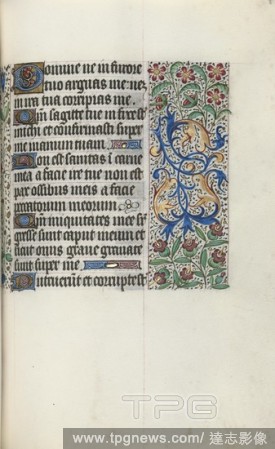 Domine ne in furore
tuo arguas me: ne
in ira tua corripias me.
Qm sagitte tue infixe st
michi et confirmasti super
me manum tuam.
Non est sanitas i carne
mea a facie ire tue non est
pax ossibus meis a facie
peccatorum meorum
Qm iniquitates mee su
gresse sunt caput meum et
sicut onus grave gravate
sunt super me.
Putruerut et corrupte st
TPG
www.tpgnews.com/達志影像